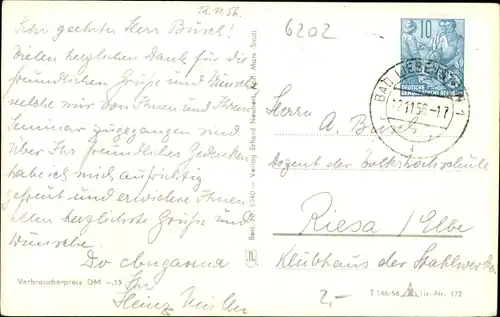 12.11.56.
Sehr geehrter Herr Busch!
Vielen herzlichen Dank für die
freundlichen Grüße und Wünsche
welche mir von Ihnen und Ihrem
Seminar zugegangen sind
Über Ihr freundliches Gedenken
habe ich mich aufrichtig
gefreut und erwidere Ihnen
allen herzlichste Grüße und
Wünsche.
Ihr
Heinz
Verbraucherpreis DM -,15
Best. Nr. Verlag Erhard Neubert, Karl-Marx-Stadt
6202
10
DEUTSCHE
DEMOKRATISCHE REPUBLIK
BAD LIEBENSTEIN 1
12.11.56-17
Herrn
A. Busch
Dozent der Volkshochschule
Riesa / Elbe
Klubhaus der Stahlwerker
2,-
T 146/56 Liz.-Nr. 172